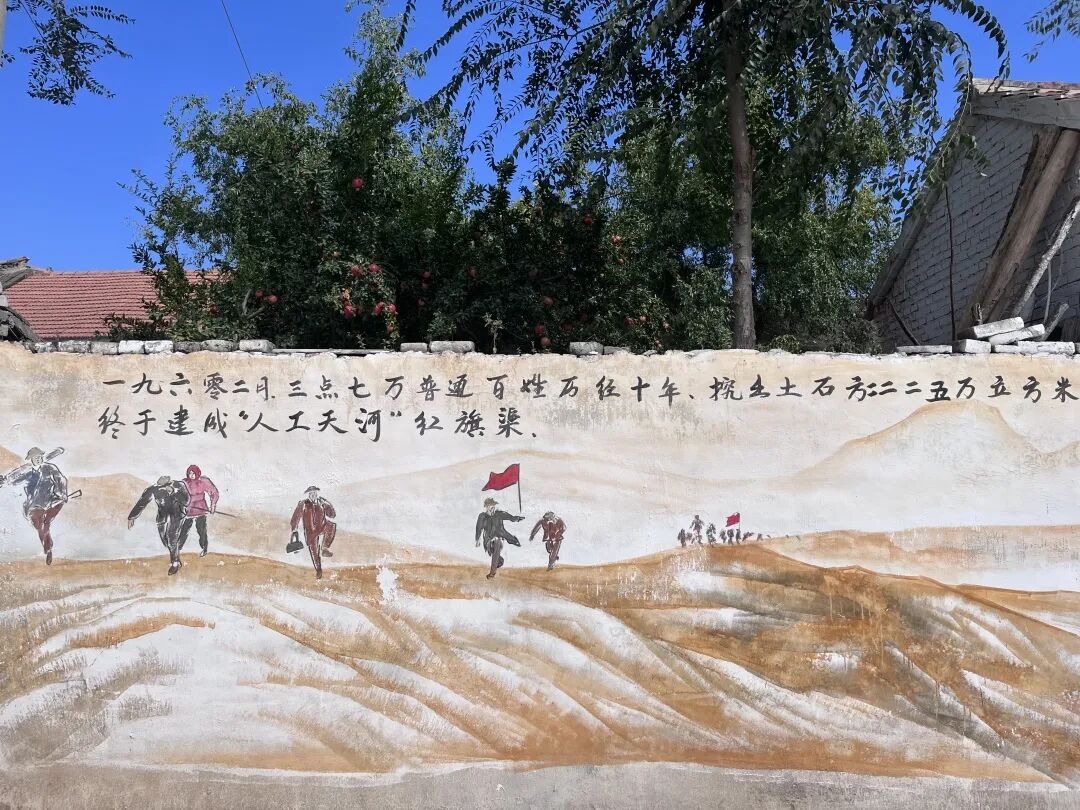 一九六零二月三点七万普通百姓历经十年、挖土土石方:二二五万立方米
终于建成“人工天河”红旗渠、